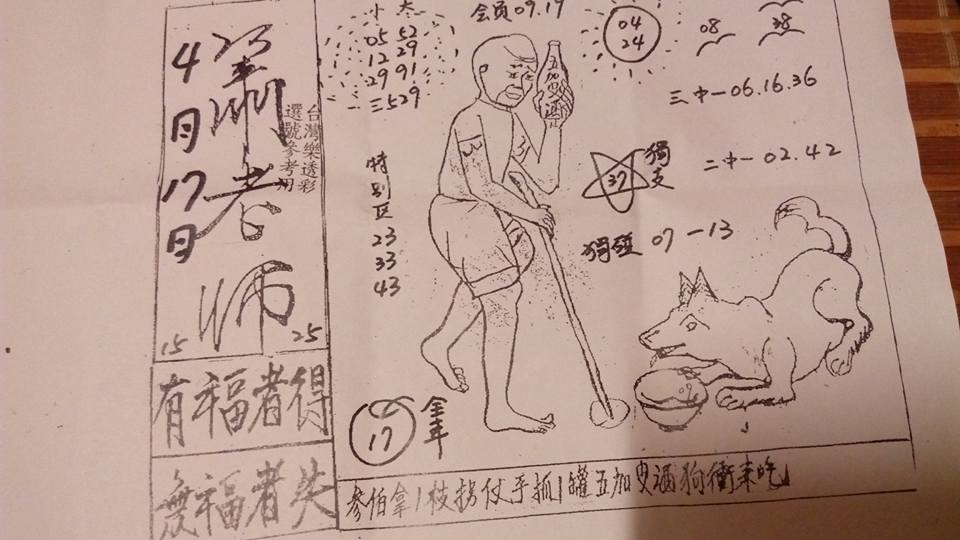 4月17日
老師
台灣樂透彩
選號參考用
15 25
有福者得
無福者失
小 大
05 52
12 29
29 91
三529
会員09.19
04
24
08
38
五加皮酒
三中一06.16.36
獨支
37
二中一02.42
特別区
23
33
43
獨發 07一13
17
全年
參伯拿1枝拐仗手抓1罐五加皮酒狗衝来吃